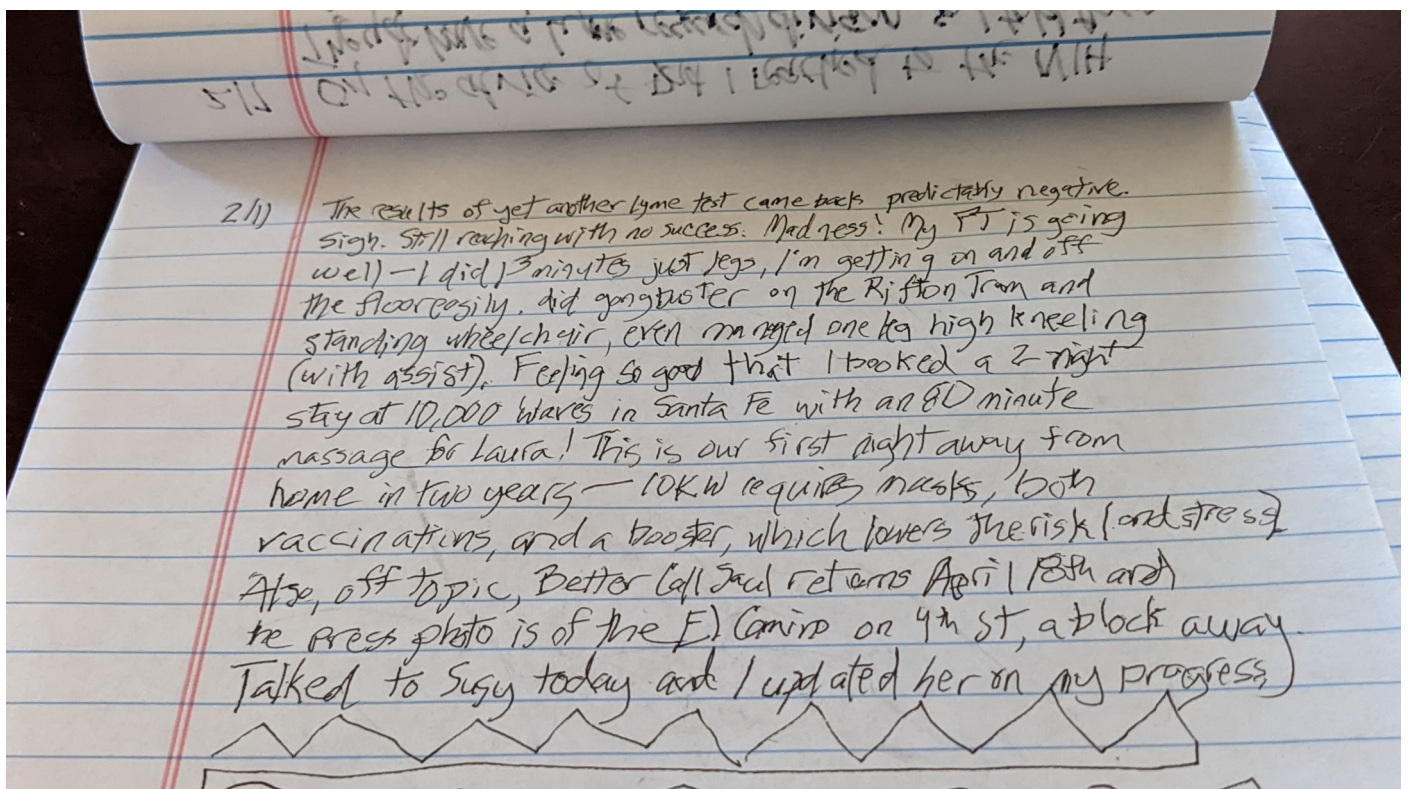 2/7 On the advice of Dut I reached to the NIH
2/11) The results of yet another lyme test came back predictably negative.
Sigh. Still reaching with no success. Madness! My PT is going
well – I did 13 minutes just legs, I'm getting on and off
the floor easily. did gangbuster on the Rifton Tram and
standing wheelchair, even managed one leg high kneeling
(with assist). Feeling so good that I booked a 2 night
stay at 10,000 Waves in Santa Fe with an 80 minute
massage for Laura! This is our first night away from
home in two years — 10KW requires masks, both
vaccinations, and a booster, which lowers the risk (and stress)
Also, off topic, Better Call Saul returns April 18th and
the press photo is of the El Camino on 4th st, a block away.
Talked to Susy today and I updated her on my progress